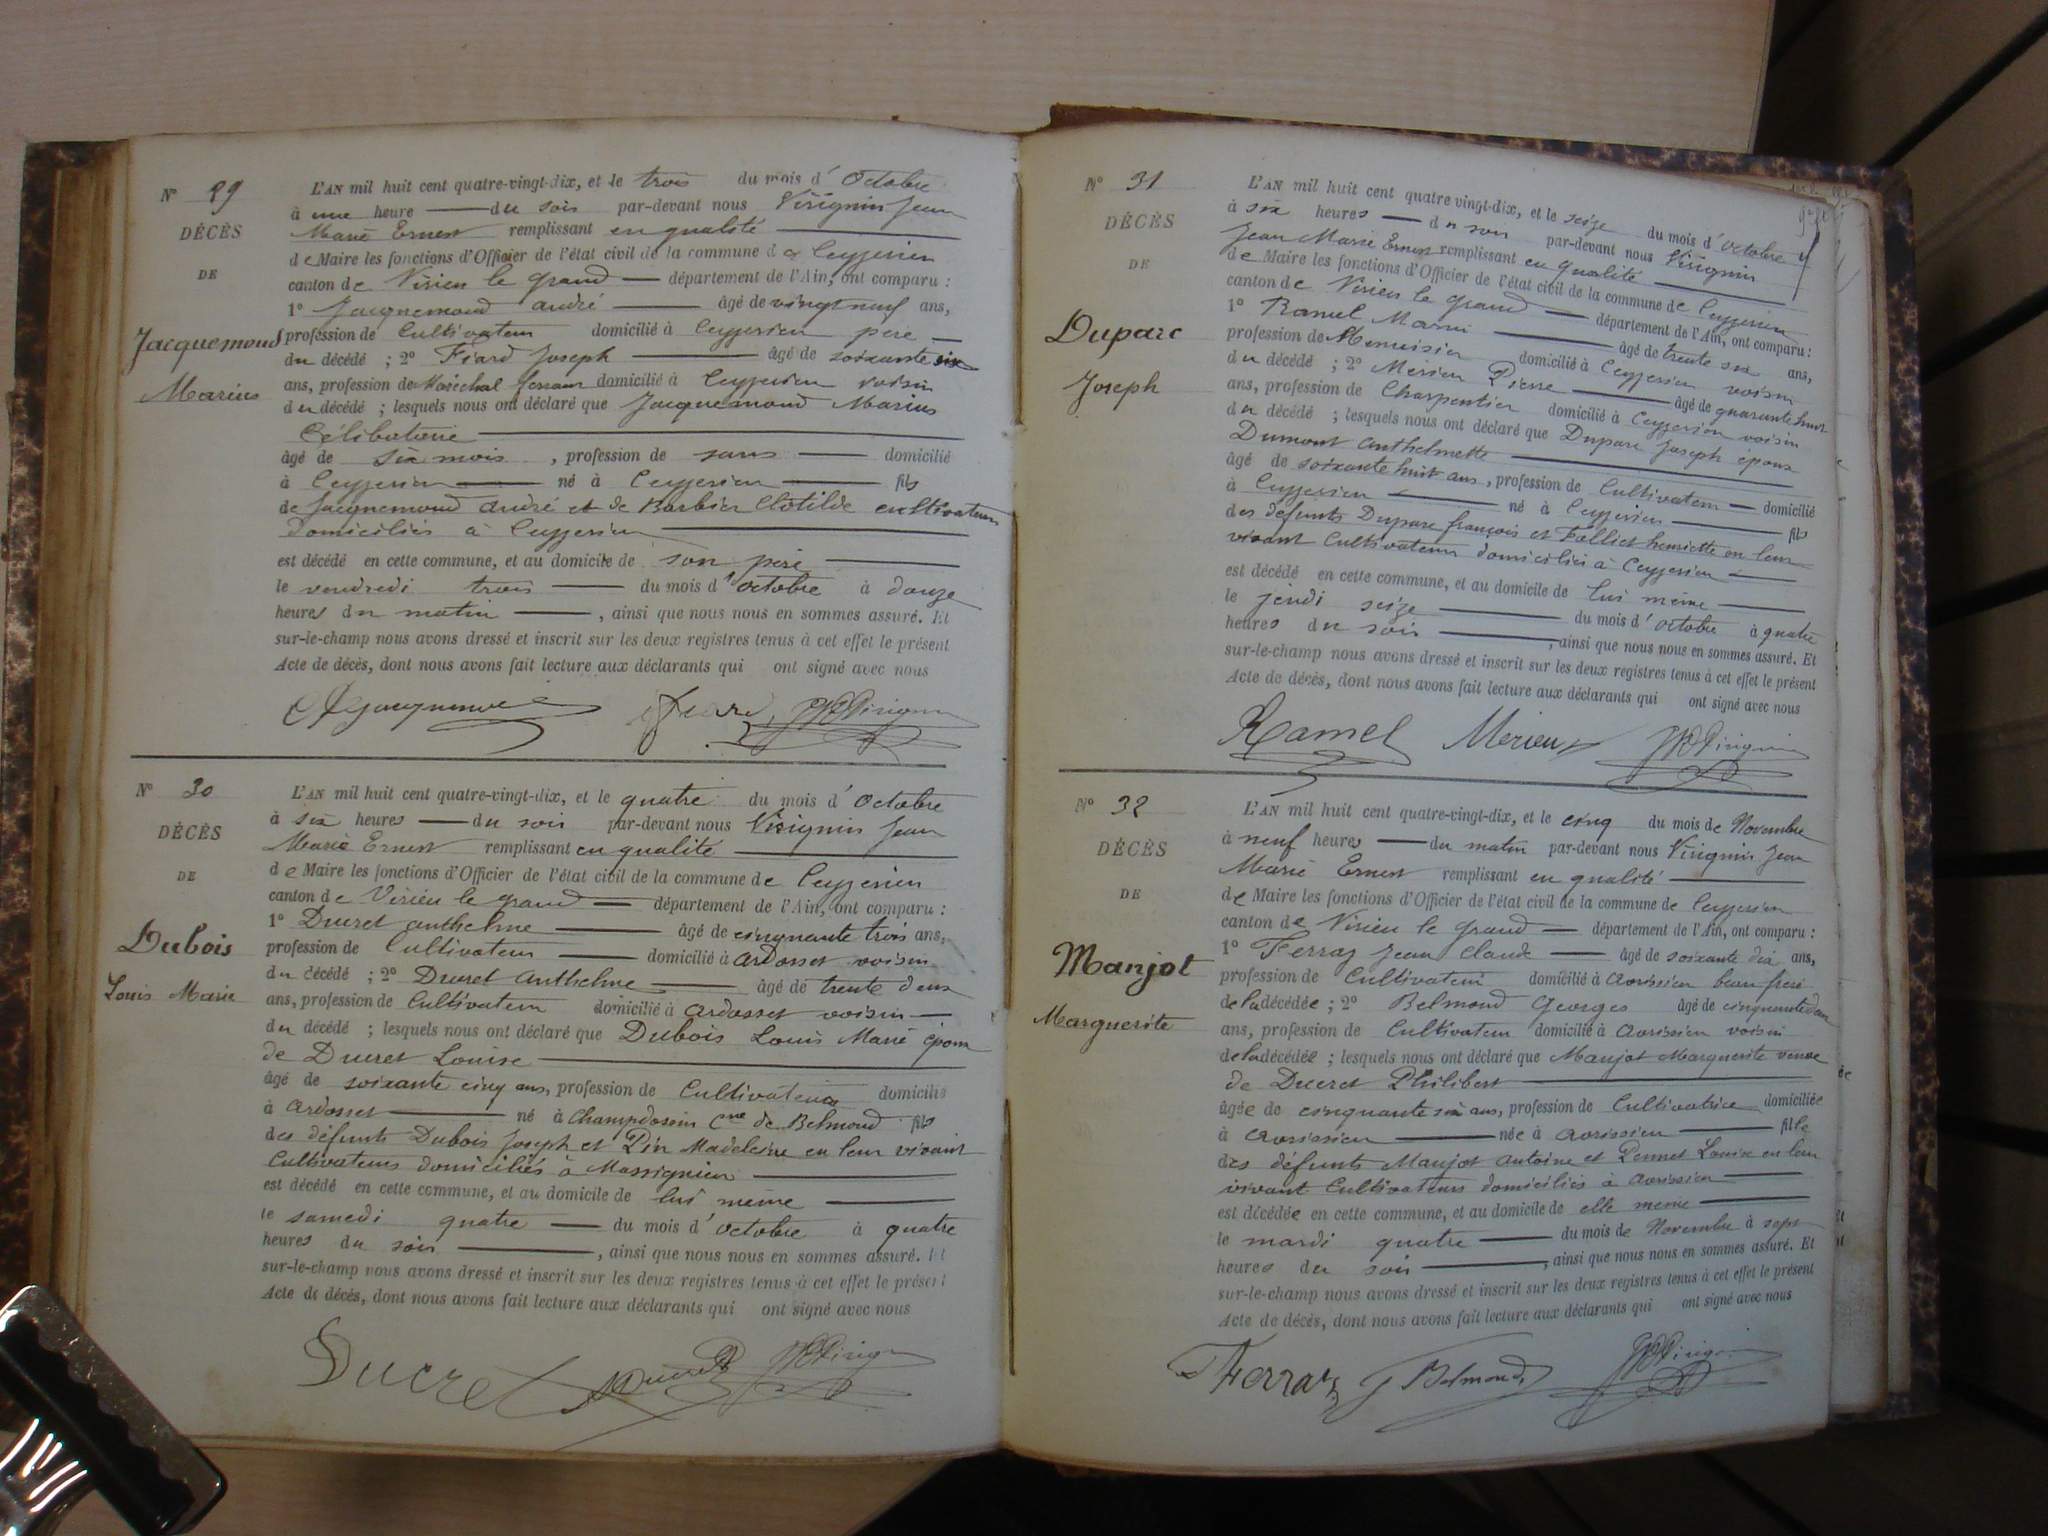 N° 29
DÉCÈS
DE
Jacquemond
Marius
L'AN mil huit cent quatre-vingt-dix, et le trois du mois d'Octobre
à une heure du soir par-devant nous Virignin Jean
Marie Ernest remplissant en qualité
de Maire les fonctions d'Officier de l'état civil de la commune de Ceyzerieu
canton de Virieu le grand département de l'Ain, ont comparu :
1° Jacquemond André âgé de vingt neuf ans,
profession de Cultivateur domicilié à Ceyzerieu père
du décédé ; 2° Fiard Joseph âgé de soixante six
ans, profession de Maréchal ferrant domicilié à Ceyzerieu voisin
du décédé ; lesquels nous ont déclaré que Jacquemond Marius
Célibataire
âgé de six mois, profession de sans domicilié
à Ceyzerieu né à Ceyzerieu fils
de Jacquemond André et de Barbier Clotilde cultivateurs
domiciliés à Ceyzerieu
est décédé en cette commune, et au domicile de son père
le vendredi trois du mois d'octobre à douze
heures du matin, ainsi que nous nous en sommes assuré. Et
sur-le-champ nous avons dressé et inscrit sur les deux registres tenus à cet effet le présent
Acte de décès, dont nous avons fait lecture aux déclarants qui ont signé avec nous
Jacquemond Fiard Virignin
N° 30
DÉCÈS
DE
Dubois
Louis Marie
L'AN mil huit cent quatre-vingt-dix, et le quatre du mois d'Octobre
à six heures du soir par-devant nous Virignin Jean
Marie Ernest remplissant en qualité
de Maire les fonctions d'Officier de l'état civil de la commune de Ceyzerieu
canton de Virieu le grand département de l'Ain, ont comparu :
1° Ducret anthelme âgé de cinquante trois ans,
profession de Cultivateur domicilié à Ardosset voisin
du décédé ; 2° Ducret Anthelme âgé de trente deux
ans, profession de Cultivateur domicilié à Ardosset voisin
du décédé ; lesquels nous ont déclaré que Dubois Louis Marie époux
de Ducret Louise
âgé de soixante cinq ans, profession de Cultivateur domicilié
à Ardosset né à Champdossin Cne de Belmond fils
des défunts Dubois Joseph et Pin Madeleine en leur vivant
Cultivateurs domiciliés à Massignieu
est décédé en cette commune, et au domicile de lui même
le samedi quatre du mois d'octobre à quatre
heures du soir, ainsi que nous nous en sommes assuré. Et
sur-le-champ nous avons dressé et inscrit sur les deux registres tenus à cet effet le présent
Acte de décès, dont nous avons fait lecture aux déclarants qui ont signé avec nous
Ducret Ducret Virignin
N° 31
DÉCÈS
DE
Duparc
Joseph
L'AN mil huit cent quatre-vingt-dix, et le seize du mois d'octobre
à six heures du soir par-devant nous Virignin
Jean Marie Ernest remplissant en qualité
de Maire les fonctions d'Officier de l'état civil de la commune de Ceyzerieu
canton de Virieu le grand département de l'Ain, ont comparu :
1° Ramel Marin âgé de trente six ans,
profession de Menuisier domicilié à Ceyzerieu voisin
du décédé ; 2° Merieu Pierre âgé de quarante huit
ans, profession de Charpentier domicilié à Ceyzerieu voisin
du décédé ; lesquels nous ont déclaré que Duparc Joseph époux
Dumont anthelmette
âgé de soixante huit ans, profession de Cultivateur domicilié
à Ceyzerieu né à Ceyzerieu fils
des défunts Duparc françois et Falliet henriette en leur
vivant Cultivateurs domiciliés à Ceyzerieu
est décédé en cette commune, et au domicile de lui même
le jeudi seize du mois d'octobre à quatre
heures du soir, ainsi que nous nous en sommes assuré. Et
sur-le-champ nous avons dressé et inscrit sur les deux registres tenus à cet effet le présent
Acte de décès, dont nous avons fait lecture aux déclarants qui ont signé avec nous
Ramel Merieu Virignin
N° 32
DÉCÈS
DE
Manjot
Marguerite
L'AN mil huit cent quatre-vingt-dix, et le cinq du mois de Novembre
à neuf heures du matin par-devant nous Virignin Jean
Marie Ernest remplissant en qualité
de Maire les fonctions d'Officier de l'état civil de la commune de Ceyzerieu
canton de Virieu le grand département de l'Ain, ont comparu :
1° Ferraz Jean Claude âgé de soixante dix ans,
profession de Cultivateur domicilié à Avrissieu beau frère
de la décédée ; 2° Belmond Georges âgé de cinquante deux
ans, profession de Cultivateur domicilié à Avrissieu voisin
de la décédée ; lesquels nous ont déclaré que Manjot Marguerite veuve
de Ducret Philibert
âgée de cinquante six ans, profession de Cultivatrice domiciliée
à Avrissieu née à Avrissieu fille
des défunts Manjot antoine et Pennet Louise en leur
vivant Cultivateurs domiciliés à Avrissieu
est décédée en cette commune, et au domicile de elle même
le mardi quatre du mois de Novembre à sept
heures du soir, ainsi que nous nous en sommes assuré. Et
sur-le-champ nous avons dressé et inscrit sur les deux registres tenus à cet effet le présent
Acte de décès, dont nous avons fait lecture aux déclarants qui ont signé avec nous
Ferraz G Belmond Virignin